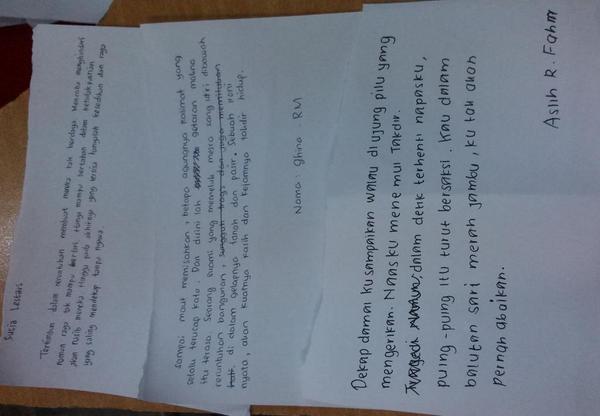 Susia Lestari
Tertimbun dalam reruntuhan membuat mereka tak berdaya Mencoba menghindari
namun raga tak mampu berlari, hanya mampu bertahan dalam ketidakpastian
akan nasib mereka. Hingga pada akhirnya yang tersisa hanyalah kesedihan dan raga
yang saling mendekap tanpa nyawa
Sampai maut memisahkan, betapa agungnya kalimat yang
selalu terucap kata. Dan disini lah getaran makna
itu terasa. Seorang suami yang memeluk mesra sang istri dibawah
reruntuhan bangunan, sungguh tragis dan juga memilukan
hati. di dalam gelapnya tanah dan pasir. Sebuah ironi
nyata, akan kuatnya kasih dan kejamnya takdir hidup.
Nama : Ghina RM
Dekap damai kusampaikan walau diujung pilu yang
mengerikan. Naasku menemui Takdir.
Tragedi dalam detik terhenti napasku,
puing-puing itu turut bersaksi. Kau dalam
balutan sari merah jambu, ku tak akan
pernah abaikan.
Asiih R. Fahmi